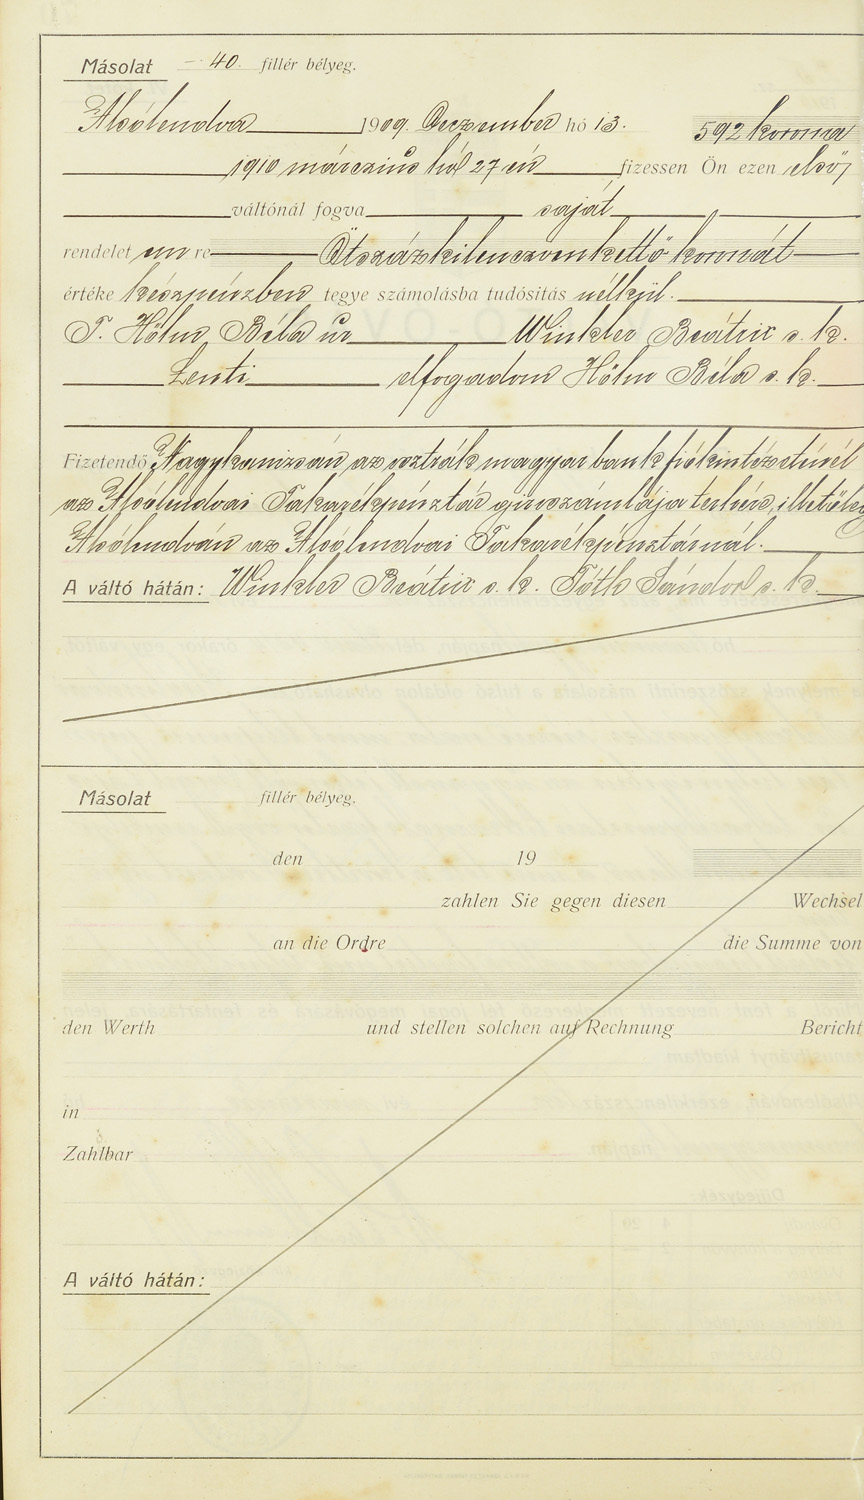 Másolat – 40. fillér bélyeg.
Alsólendva 1909. Deczember hó 13. 592 korona
1910 márczius hó 27 én fizessen Ön ezen első
váltónál fogva saját
rendelet em re Ötszázkilenczvenkettő koronát
értéke készpénzben tegye számolásba tudósítás nélkül.
T. Hölm Béla úr Winkler Beátrix s. k.
Lenti elfogadom Hölm Béla s. k.
Fizetendő Nagykanizsán az osztrák magyar bank fiókintézeténél
az Alsólendvai Takarékpénztár giroszámlája terhére, illetőleg
Alsólendván az Alsólendvai Takarékpénztárnál.
A váltó hátán: Winkler Beátrix s. k. Tóth Sándor s. k.
Másolat fillér bélyeg.
den 19
zahlen Sie gegen diesen Wechsel
an die Ordre die Summe von
den Werth und stellen solchen auf Rechnung Bericht
in
Zahlbar
A váltó hátán: